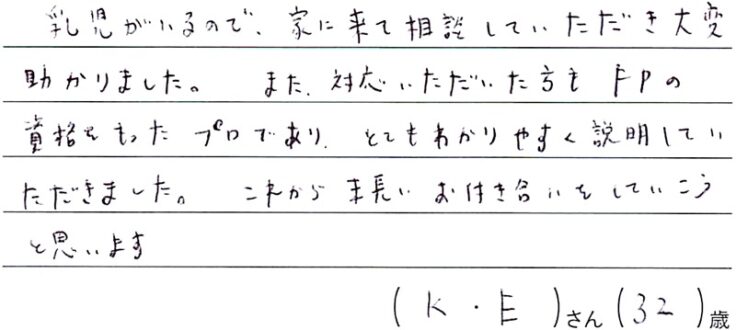 乳児がいるので、家に来て相談していただき大変
助かりました。 また、対応いただいた方も FPの
資格をもった プロであり、とてもわかりやすく説明してい
ただきました。 これから末長い お付き合いをしていこう
と思います
(K・E)さん(32)歳